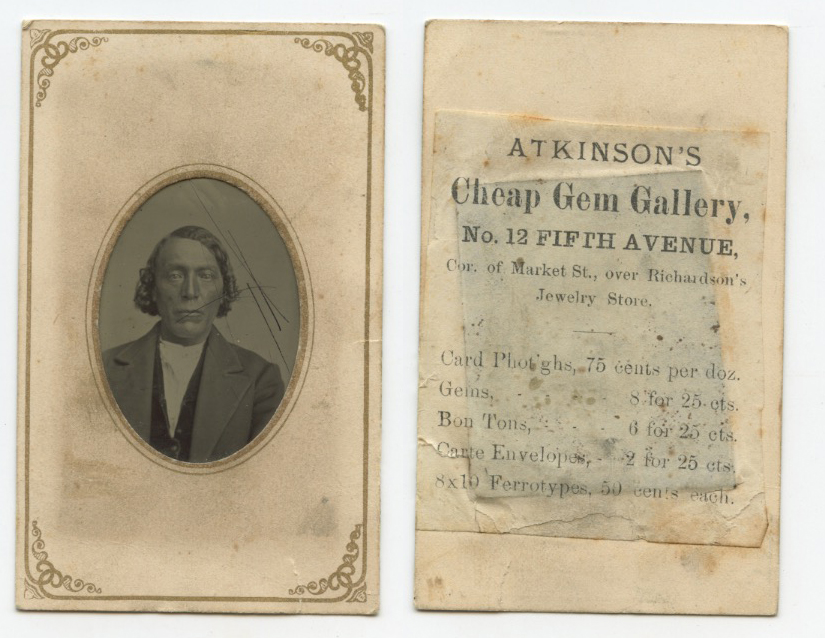 ATKINSON'S
Cheap Gem Gallery,
No. 12 FIFTH AVENUE,
Cor. of Market St., over Richardson's
Jewelry Store.
Card Phot'ghs, 75 cents per doz.
Gems, - - - - 8 for 25 cts.
Bon Tons, - - - 6 for 25 cts.
Carte Envelopes, - 2 for 25 cts.
8x10 Ferrotypes, 50 cents each.